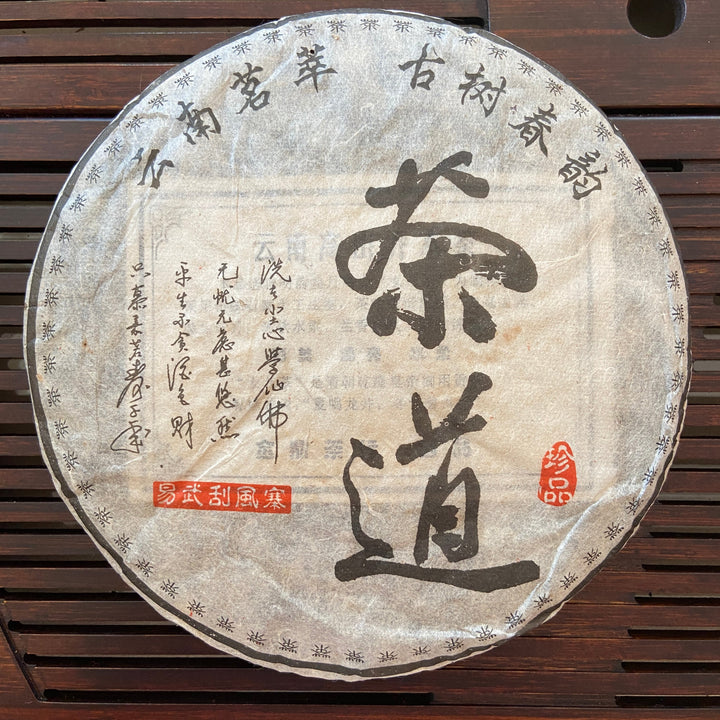 云南茗萃 古树春韵
茶道
洗去尘心學仙佛
无忧无虑甚悠然
平生不贪酒色财
只慕香茗寿千年
易武刮風寨
珍品